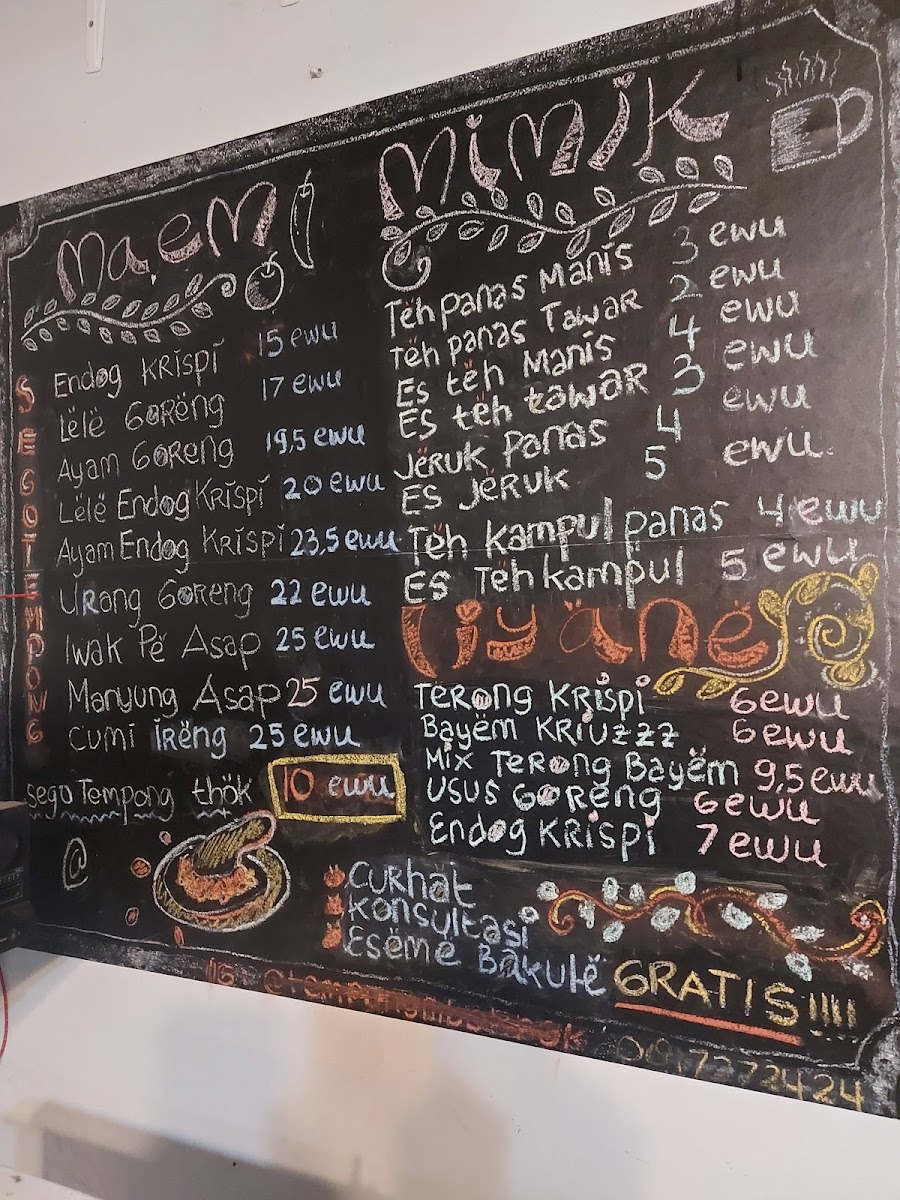 Maem
SEGO TEMPONG
Endog KRispi 15 ewu
Lëlë GoRëng 17 ewu
Ayam GoReng 19,5 ewu
Lëlë Endog KRispi 20 ewu
Ayam Endog KRispi 23,5 ewu
URang GoReng 22 ewu
Iwak Pé Asap 25 ewu
Manyung Asap 25 ewu
Cumi Irëng 25 ewu
Sego Tempong thök 10 ewu
MiMiK
Tëh panas Manis 3 ewu
Tëh panas Tawar 2 ewu
Es tëh Manis 4 ewu
Es tëh tawaR 3 ewu
Jëruk Panas 4 ewu
Es Jëruk 5 ewu.
Tëh kampul panas 4 ewu
Es Tëh kampul 5 ewu
Liyänë
TeRong KRispi 6 ewu
Bayëm KRiuzzz 6 ewu
Mix TeRong Bayëm 9,5 ewu
Usus GoRëng 6 ewu
Endog KRispi 7 ewu
@
CuRhat
Konsultasi
Esëme Bakulë GRATIS !!!!